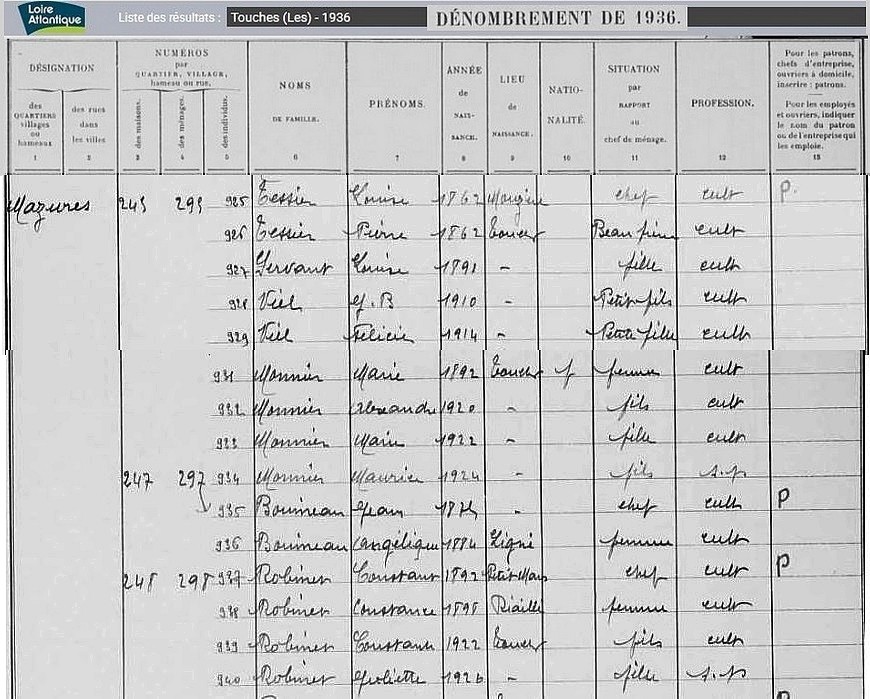 Loire Atlantique
Liste des résultats : Touches (Les) - 1936
DÉNOMBREMENT DE 1936.
DÉSIGNATION
des QUARTIERS villages ou hameaux
1
des rues dans les villes
2
NUMÉROS par QUARTIER, VILLAGE, hameau ou rue.
des maisons.
3
des ménages.
4
des individus.
5
NOMS DE FAMILLE.
6
PRÉNOMS.
7
ANNÉE de NAISSANCE.
8
LIEU de NAISSANCE.
9
NATIONALITÉ.
10
SITUATION par RAPPORT au chef de ménage.
11
PROFESSION.
12
Pour les patrons, chefs d'entreprise, ouvriers à domicile, inscrire : patrons.
Pour les employés et ouvriers, indiquer le nom du patron ou de l'entreprise qui les emploie.
13
Mazures 245 295 925 Tessier Louise 1862 chef cult P
926 Tessier Pierre 1862 Touches Beau frère cult
927 Gervant Louise 1891 - fille cult
928 Viel J.B 1910 - Petit fils cult
929 Viel Félicie 1914 - Petite fille cult
931 Monnier Marie 1892 Touches f femme cult
932 Monnier Alexandre 1920 - fils cult
933 Monnier Marie 1922 - fille cult
934 Monnier Maurice 1924 - fils s.p
247 297 935 Bourneau Jean - chef cult P
936 Bourneau Angélique 1884 Ligné femme cult
248 298 937 Robinet Constant 1892 Petit Mars chef cult P
938 Robinet Constance 1898 Riaillé femme cult
939 Robinet Constant 1922 Touches fils cult
940 Robinet Juliette 1926 - fille s.p